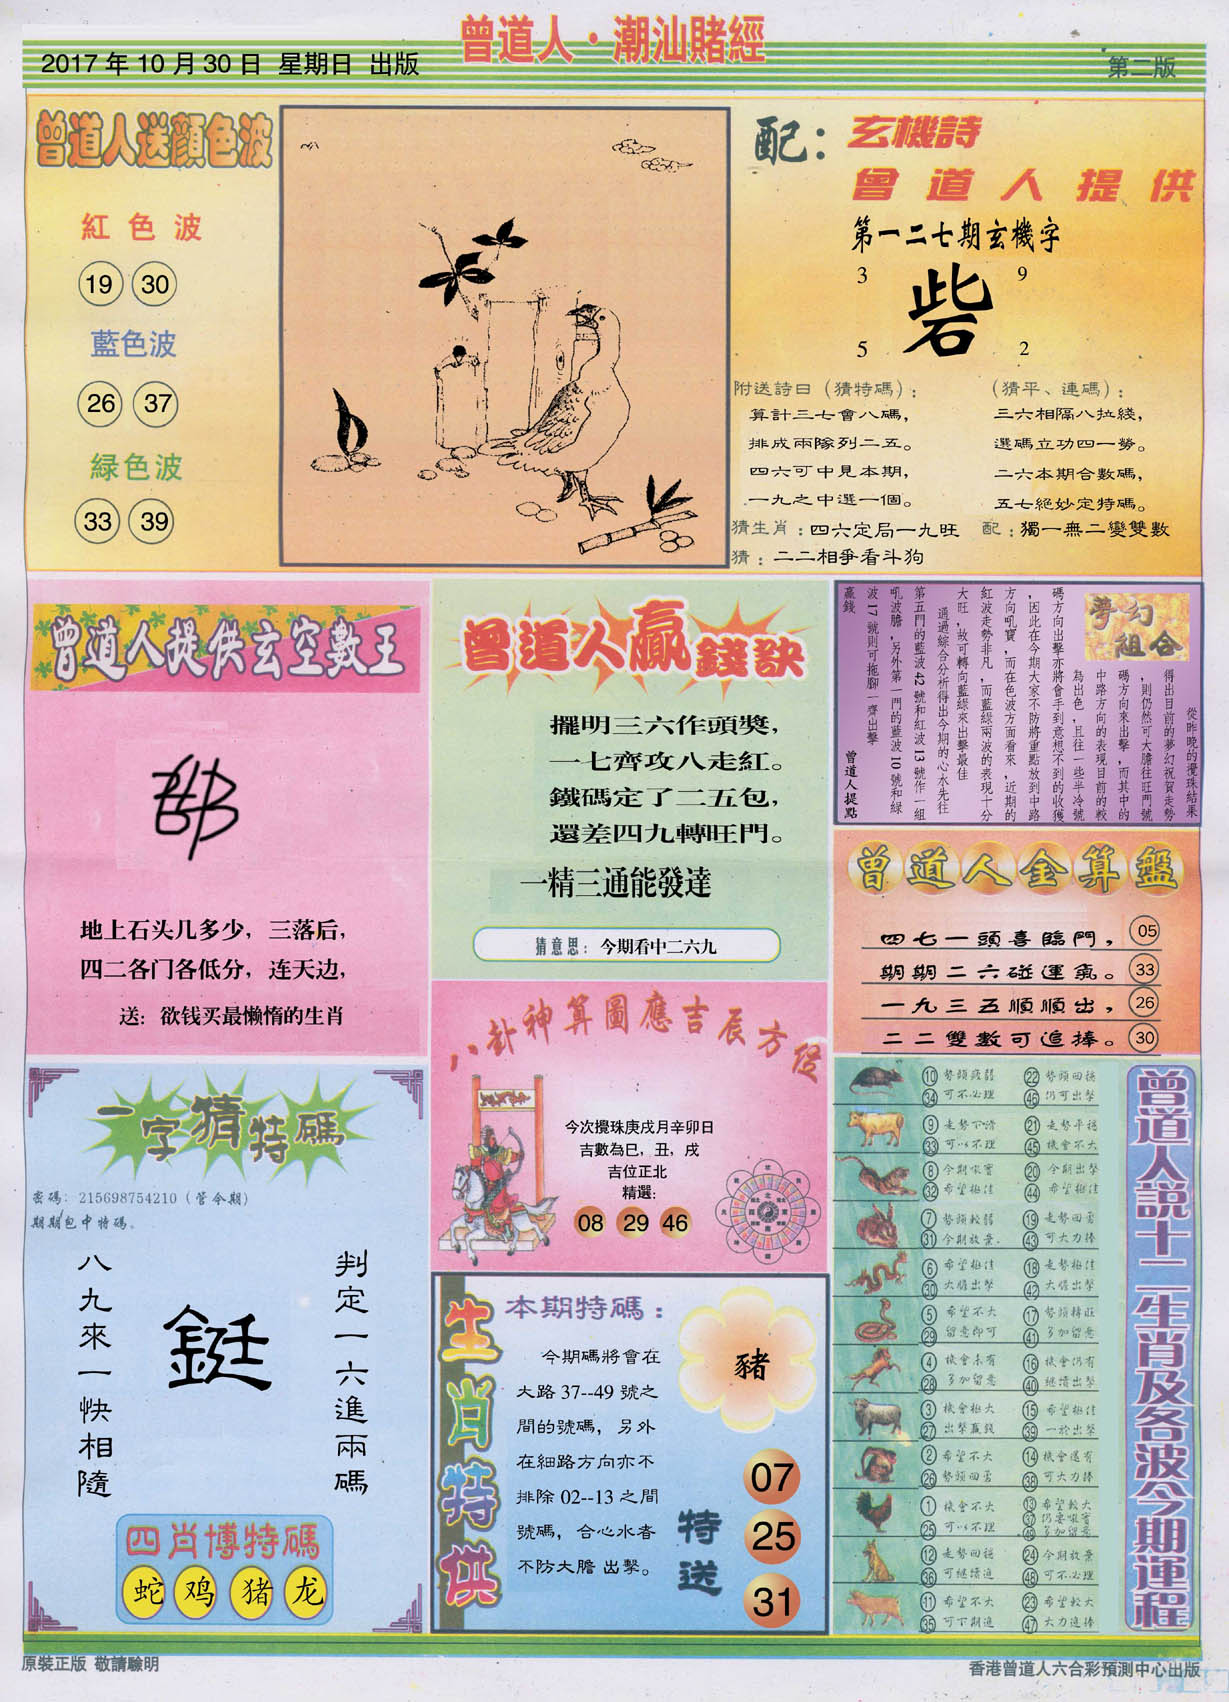 曾道人·潮汕賭經
2017 年 10 月 30 日 星期日 出版
第二版
曾道人送顏色波
紅色波
19 30
藍色波
26 37
緑色波
33 39
配：
玄機詩
曾道人提供
第一二七期玄機字
3 9
砦
5 2
附送詩日（猜特碼）：
算計三七會八碼，
排成兩隊列二五。
四六可中見本期，
一九之中選一個。
（猜平、連碼）：
三六相隔八拉綫，
選碼立功四一勞。
二六本期合數碼，
五七絕妙定特碼。
猜生肖：四六定局一九旺
配：獨一無二變雙數
猜：二二相爭看斗狗
曾道人提供玄空數王
地上石头几多少，三落后，
四二各门各低分，连天边，
送：欲钱买最懒惰的生肖
曾道人贏錢訣
擺明三六作頭獎，
一七齊攻八走紅。
鐵碼定了二五包，
還差四九轉旺門。
一精三通能發達
猜意思：今期看中二六九
夢幻
組合
從昨晚的攪珠結果
得出目前的夢幻祝賀走勢
，則仍然可大膽往旺門號
碼方向來出擊，而其中的
中路方向的表現目前的較
為出色，且往一些半冷號
碼方向出擊亦將會手到意想不到的收獲
，因此在今期大家不防將重點放到中路
方向吼寶，而在色波方面看來，近期的
紅波走勢非凡，而藍綠兩波的表現十分
大旺，故可轉向藍綠來出擊最佳
通過綜合分析得出今期的心水先往
第五門的藍波 42 號和紅波 13 號作一組
吼波膽，另外第一門的藍波 10 號和綠
波 17 號則可拖腳一齊出擊
贏錢
曾道人提點
曾道人金算盤
四七一頭喜臨門， 05
期期二六碰運氣。 33
一九三五順順出， 26
二二雙數可追捧。 30
八卦神算圖應吉辰方位
今次攪珠庚戌月辛卯日
吉數為巳，丑，戌
吉位正北
精選：
08 29 46
一字猜特碼
密碼：215698754210（管今期）
期期包中特碼。
判定一六進兩碼
鋌
八九來一快相隨
四肖博特碼
蛇 鸡 猪 龙
生肖特供
本期特碼：
今期碼將會在
大路 37--49 號之
間的號碼，另外
在細路方向亦不
排除 02--13 之間
號碼，合心水者
不防大膽 出擊。
豬
特送
07
25
31
曾道人説十二生肖及各波今期運程
10 勢頭疲弱 22 勢頭回穩
34 可不必理 46 仍可出擊
9 走勢下滑 21 走勢平穩
33 可以不理 45 機會不大
8 今期吼寶 20 今期出擊
32 希望極佳 44 希望極佳
7 勢頭較弱 19 走勢回勇
31 今期放棄 43 可大力捧
6 希望極佳 18 走勢極佳
30 大膽出擊 42 大膽出擊
5 希望不大 17 勢頭轉旺
29 留意即可 41 多加留意
4 機會未有 16 機會仍有
28 多加留意 40 繼續出擊
3 機會極大 15 希望極佳
27 出擊贏錢 39 一於出擊
2 希望不大 14 機會還有
26 勢頭回勇 38 可大力捧
1 機會不大 13 希望較大
37 仍要吼寶
25 可以不理 49 多加留意
12 走勢回穩 24 今期放棄
36 可繼續追 48 可不必理
11 希望不大 23 希望較大
35 可下期追 47 大力追捧
原裝正版 敬請驗明
香港曾道人六合彩預測中心出版